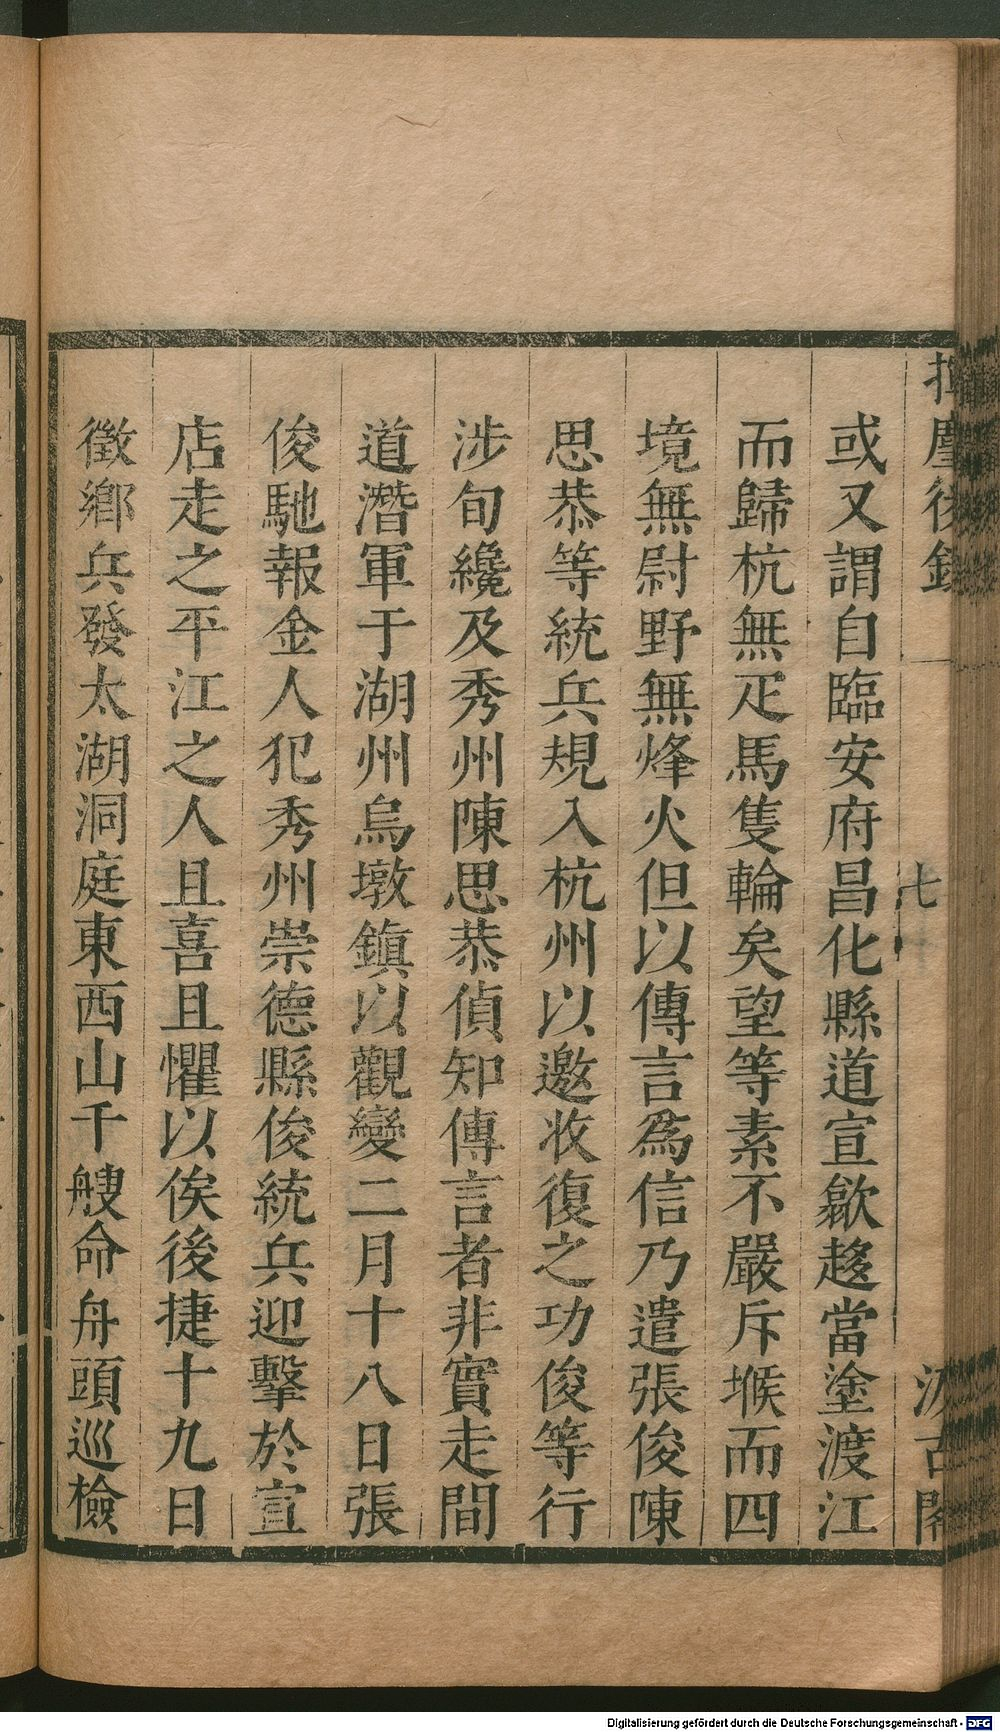 揮麈後錄
七
汲古閣
或又謂自臨安府昌化縣道宣歙趍當塗渡江
而歸杭無疋馬隻輪矣望等素不嚴斥堠而四
境無尉野無烽火但以傳言爲信乃遣張俊陳
思恭等統兵規入杭州以邀收復之功俊等行
涉旬纔及秀州陳思恭偵知傳言者非實走間
道潛軍于湖州烏墩鎮以觀變二月十八日張
俊馳報金人犯秀州崇德縣俊統兵迎擊於宣
店走之平江之人且喜且懼以俟後捷十九日
徵鄉兵發太湖洞庭東西山千艘命舟頭巡檢
Digitalisierung gefördert durch die Deutsche Forschungsgemeinschaft - DFG